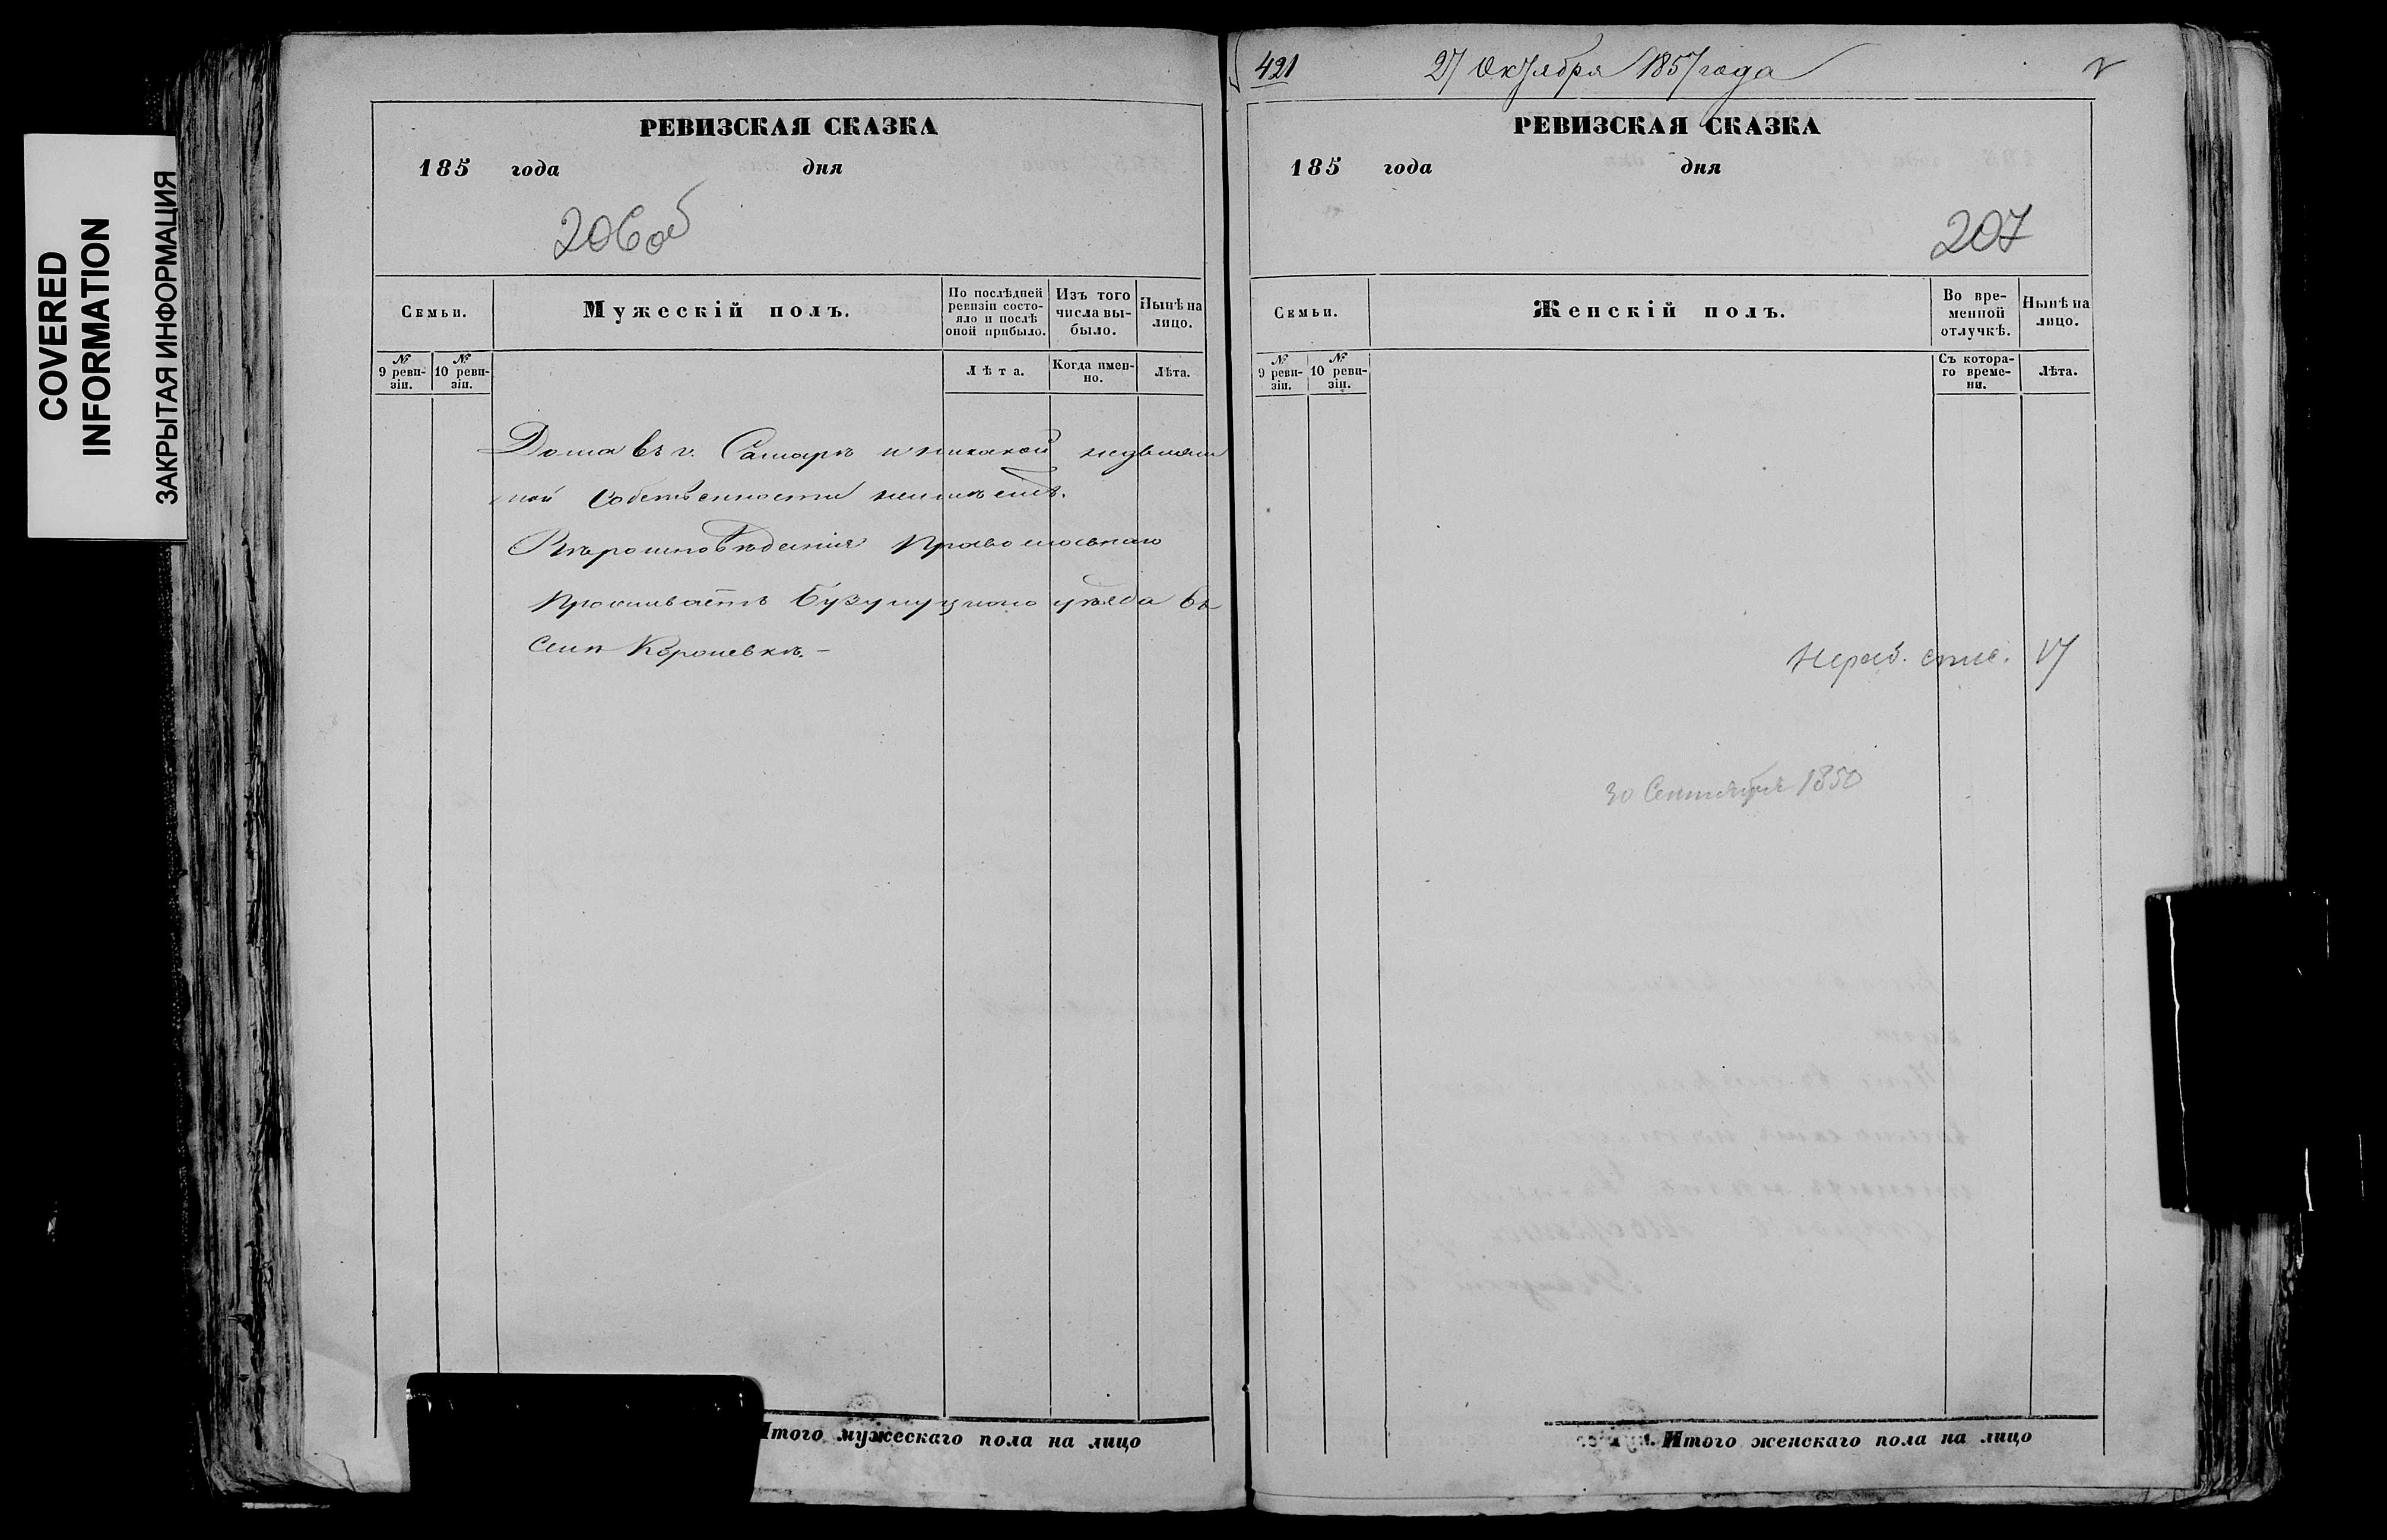 COVERED
INFORMATION
ЗАКРЫТАЯ ИНФОРМАЦИЯ
РЕВИЗСКАЯ СКАЗКА
185 года дня
206об
Семьи.
Мужескій полъ.
По послѣдней ревизіи состояло и послѣ оной прибыло.
Изъ того числа выбыло.
Нынѣ на лицо.
№ 9 ревизіи.
№ 10 ревизіи.
Лѣта.
Когда именно.
Лѣта.
Дома въ г. Самарѣ и никакой недвижи
мой собственности неимѣетъ.
Вѣроисповѣданія Православнаго
Проживаетъ Бузулуцкаго уѣзда въ
селѣ
Итого мужескаго пола на лицо
421
27 Октября 1857 года
РЕВИЗСКАЯ СКАЗКА
185 года дня
207
Семьи.
Женскій полъ.
Во временной отлучкѣ.
Нынѣ на лицо.
№ 9 ревизіи.
№ 10 ревизіи.
Съ котораго времени.
Лѣта.
30 Сентября 1850
Итого женскаго пола на лицо